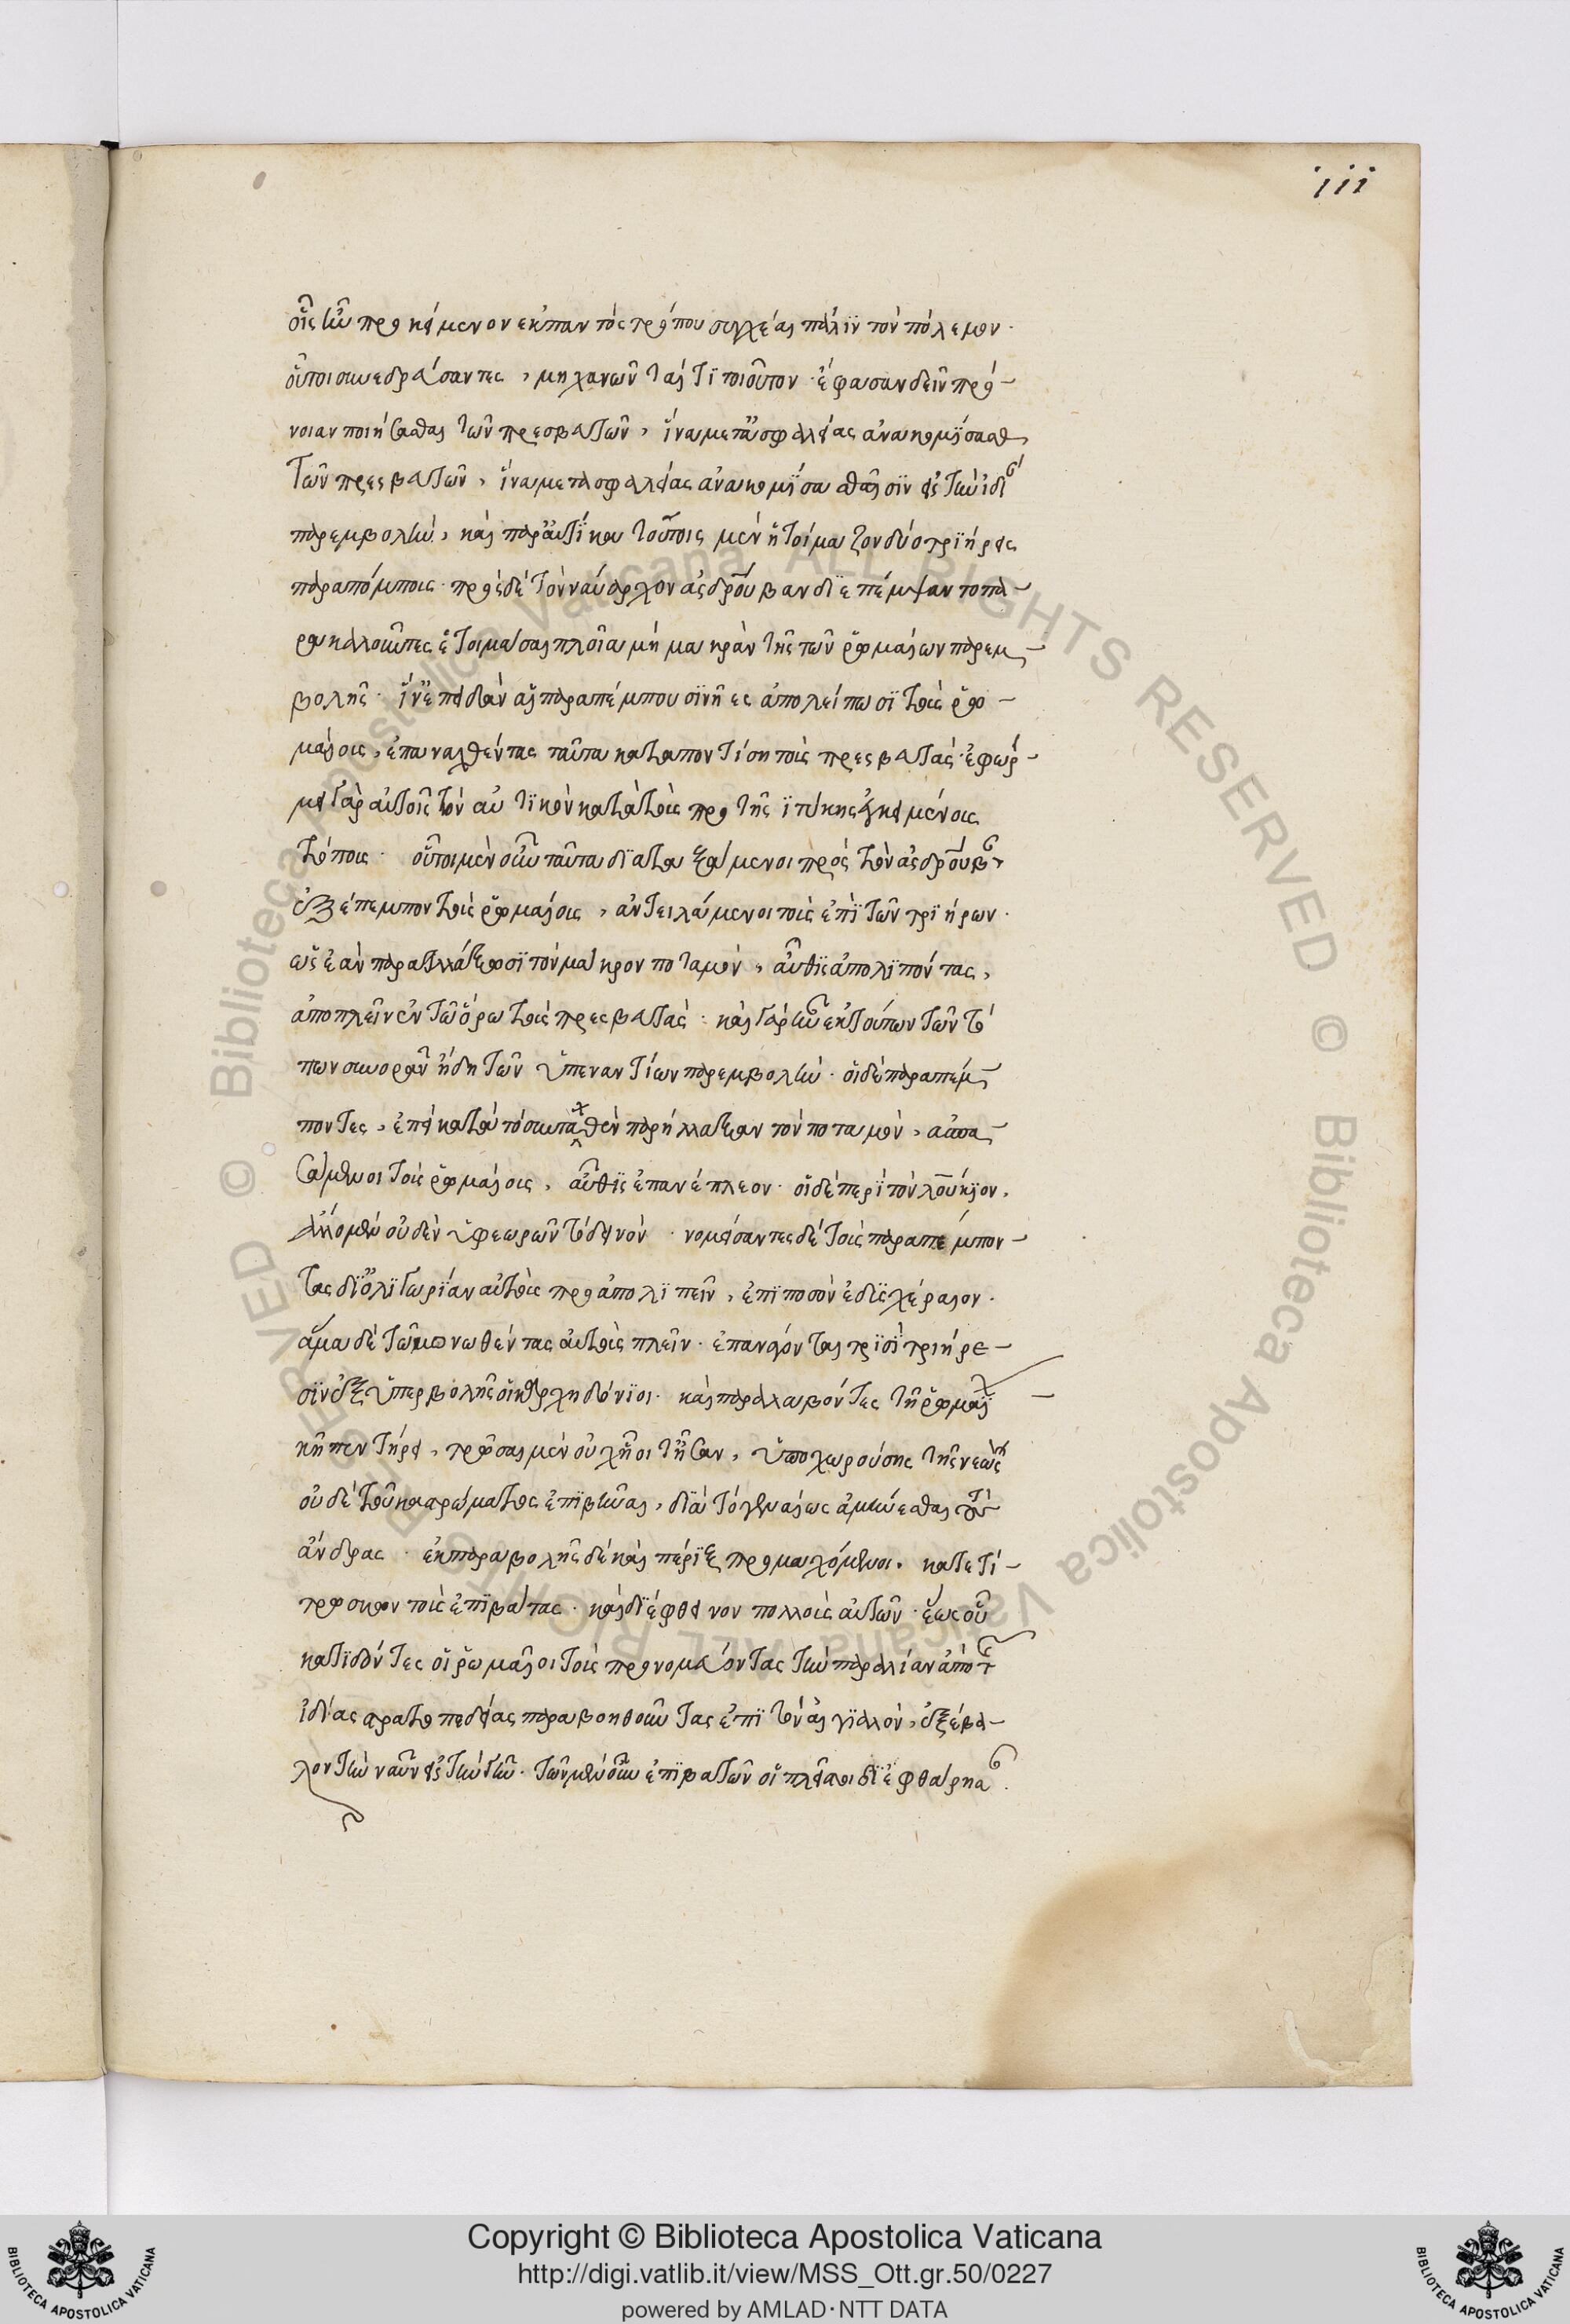 iii
οἷς ἦν προκείμενον ἐκ παντὸς τρόπου συγχέαι πάλιν τὸν πόλεμον·
οὗτοι συνεδρεύσαντες, μηχανῶνταί τι τοιοῦτον· ἔφασαν δεῖν πρό-
νοιαν ποιήσασθαι τῶν πρεσβευτῶν, ἵνα μετ' ἀσφαλείας ἀνακομίσασθ
τῶν πρεσβευτῶν, ἵνα μετ' ἀσφαλείας ἀνακομισθῶσιν εἰς τὴν ἰδί
παρεμβολὴν, καὶ παραυτίκα τούτοις μὲν ἡτοίμαζον δύο τριήρεις
παραπόμπους· πρὸς δὲ τὸν ναύαρχον ἀσδρούβαν διεπέμψαντο πα-
ρακαλοῦντες ἑτοιμάσαι πλοῖα μὴ μακρὰν τῆς τῶν ῥωμαίων παρεμ-
βολῆς· ἵν' ἐπειδὰν αἱ παραπέμπουσι νῆες ἀπολείπωσι τοὺς ῥω-
μαίους, ἐπαναχθέντας ταῦτα καταποντίσῃ τοὺς πρεσβευτάς· ἐφώρ-
μει γὰρ αὐτοῖς τὸν αὐτικὸν κατὰ τοὺς πρὸ τῆς ἰτύκης ἐγκειμένους
τόπους· οὗτοι μὲν οὖν ταῦτα διαταξάμενοι πρὸς τὸν ἀσδρούβ
ἐξέπεμπον τοὺς ῥωμαίους, ἐντειλάμενοι τοῖς ἐπὶ τῶν τριήρων·
ὡς ἐὰν παραλλάξωσι τὸν μακρον ποταμὸν, αὖθις ἀπολιπόντας,
ἀποπλεῖν ἐν τῷ ὅρω τοὺς πρεσβευτάς· καὶ γὰρ ἦν ἐκ τούτων τῶν τό
πων συνορᾶν ἤδη τῶν ὑπεναντίων παρεμβολὴν· οἱ δὲ παραπέμ-
ποντες, ἐπεὶ κατὰ τὸ συνταχθὲν παρήλλαξαν τὸν ποταμὸν, ἀσπα-
σάμενοι τοὺς ῥωμαίους, αὖθις ἐπανέπλεον· οἱ δὲ περὶ τὸν λούκιον,
ἄλλο μὲν οὐδὲν ὑφεωρῶντο δεινὸν· νομίσαντες δὲ τοὺς παραπέμπον-
τας δι' ὀλιγωρίαν αὐτοὺς προαπολιπεῖν, ἐπὶ ποσὸν ἐδυσχέραινον·
ἅμα δὲ τῷ μονωθέντας αὐτοὺς πλεῖν· ἐπανάγονται τρισὶ τριήρε-
σιν ἐξ ὑπερβολῆς οἱ καρχηδόνιοι· καὶ παραλαβόντες τῇ ῥωμαϊ-
κῇ πεντήρει, τρῶσαι μὲν οὐχ οἷοί τ' ἦσαν, ὑποχωρούσης τῆς νεὼς
οὐδὲ τοῦ καταστρώματος ἐπιβῆναι, διὰ τὸ γενναίως ἀμύνεσθαι τοὺς
ἄνδρας· ἐκ παραβολῆς δὲ καὶ πέριξ προσμαχόμενοι. κατετί-
τρωσκον τοὺς ἐπιβάτας· καὶ διέφθειρον πολλοὺς αὐτῶν· ἕως οὗ
κατιδόντες οἱ ῥωμαῖοι τοὺς προνομεύοντας τὴν παραλίαν ἀπὸ τ
ἰδίας στρατοπεδείας παραβοηθοῦντας ἐπὶ τὸν αἰγιαλὸν, ἐξέβα-
λον τὴν ναῦν εἰς τὴν γῆν· τῶν μὲν οὖν ἐπιβατῶν οἱ πλεῖστοι διεφθάρησα.